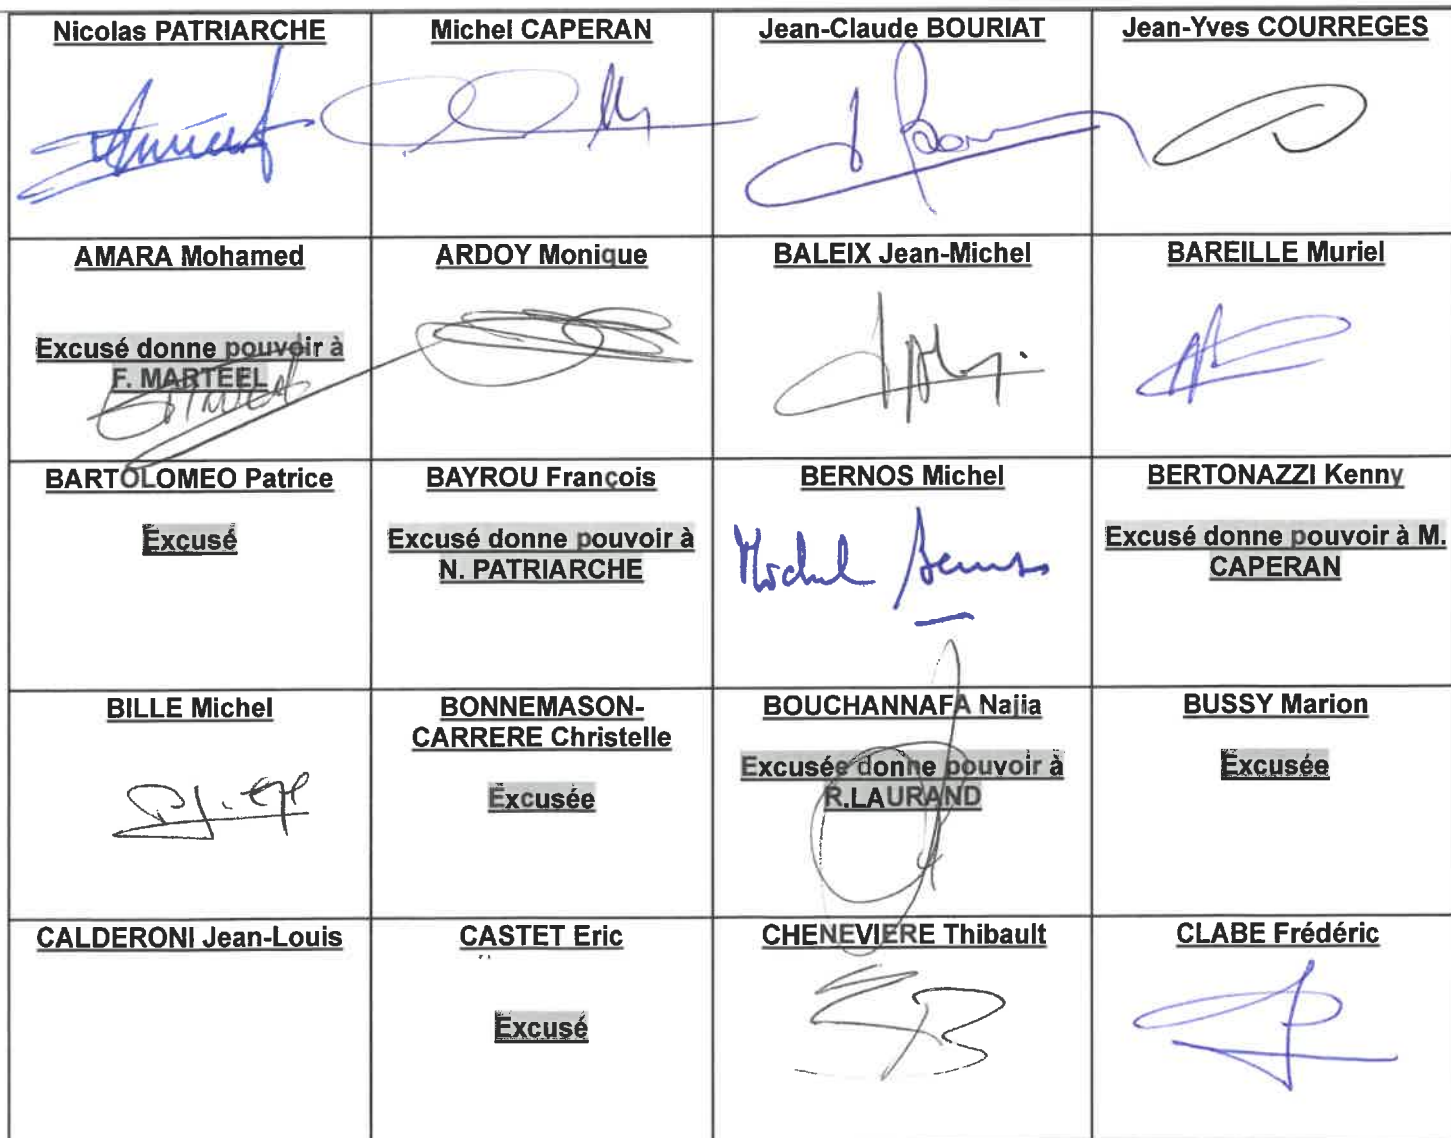 Nicolas PATRIARCHE
Michel CAPERAN
Jean-Claude BOURIAT
Jean-Yves COURREGES
AMARA Mohamed
Excusé donne pouvoir à
F. MARTEEL
ARDOY Monique
BALEIX Jean-Michel
BAREILLE Muriel
BARTOLOMEO Patrice
Excusé
BAYROU François
Excusé donne pouvoir à
N. PATRIARCHE
BERNOS Michel
Michel Bernos
BERTONAZZI Kenny
Excusé donne pouvoir à M.
CAPERAN
BILLE Michel
BONNEMASON-
CARRERE Christelle
Excusée
BOUCHANNAFA Najia
Excusée donne pouvoir à
R.LAURAND
BUSSY Marion
Excusée
CALDERONI Jean-Louis
CASTET Eric
Excusé
CHENEVIERE Thibault
CLABE Frédéric